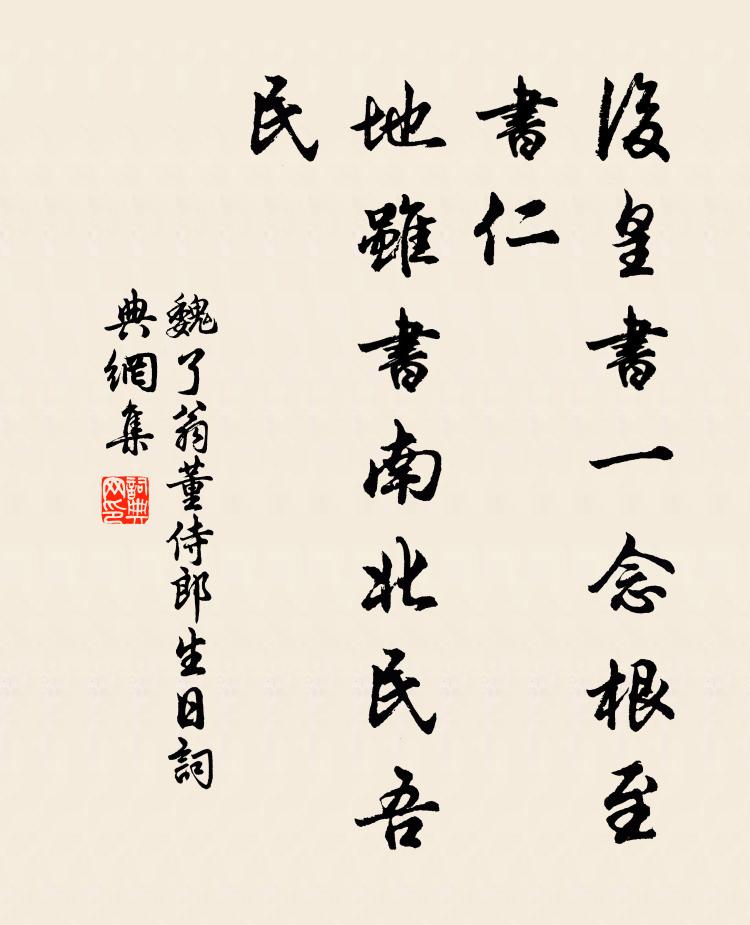 後皇書一念根至
書仁
地雖書南北民吾
民
魏了翁董侍郎生日詞
典網集
詞典
网印